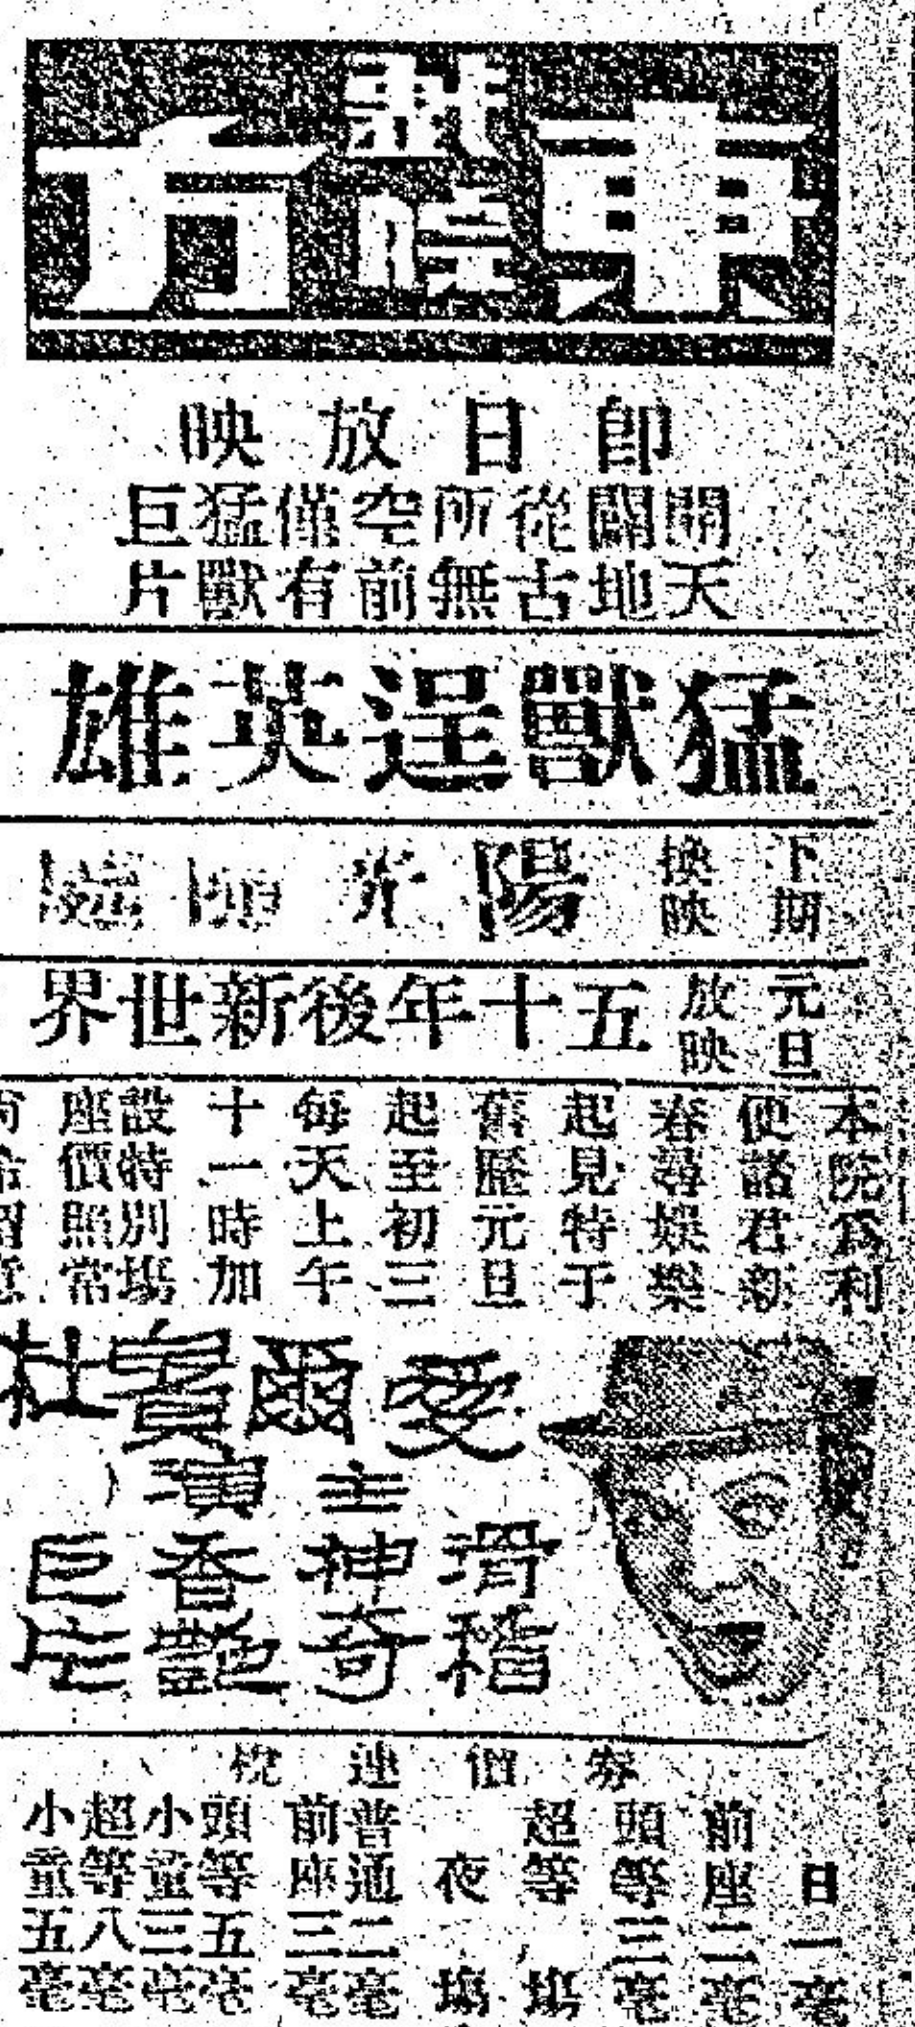 東方
即日放映
開天闢地
從古所無
空前僅有
猛獸巨片
猛獸逞英雄
下期換映
陽光
元旦放映
五十年後新世界
本院爲利
便諸君新
春尋娛樂
起見特于
舊歷元旦
起至初三
每天上午
十一時加
設特別場
座價照常
愛爾賓杜
主演
滑稽神奇香艷巨片
券價連
日
前座二毫
頭等三毫
超等
夜場
普通二毫
前座三毫
頭等五毫
小童三毫
超等八毫
小童五毫